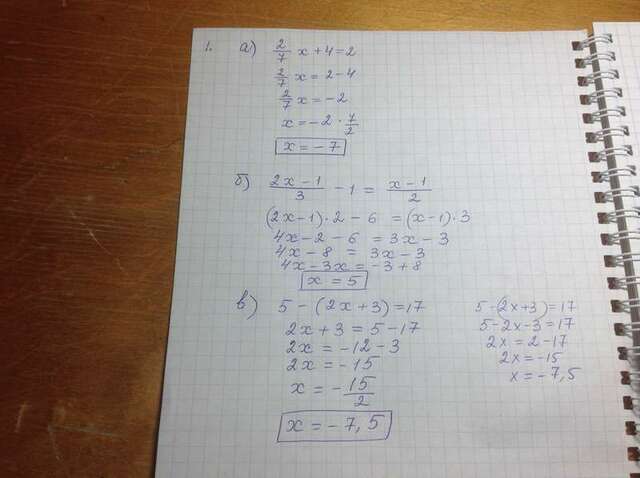 1. а) 2/7 x + 4 = 2
2/7 x = 2 - 4
2/7 x = -2
x = -2 · 7/2
x = -7
б) (2x - 1)/3 - 1 = (x - 1)/2
(2x-1)·2 - 6 = (x-1)·3
4x - 2 - 6 = 3x - 3
4x - 8 = 3x - 3
4x - 3x = -3 + 8
x = 5
в) 5 - (2x + 3) = 17
2x + 3 = 5 - 17
2x = -12 - 3
2x = -15
x = -15/2
x = -7,5
5 - (2x+3) = 17
5 - 2x - 3 = 17
2x = 2 - 17
2x = -15
x = -7,5